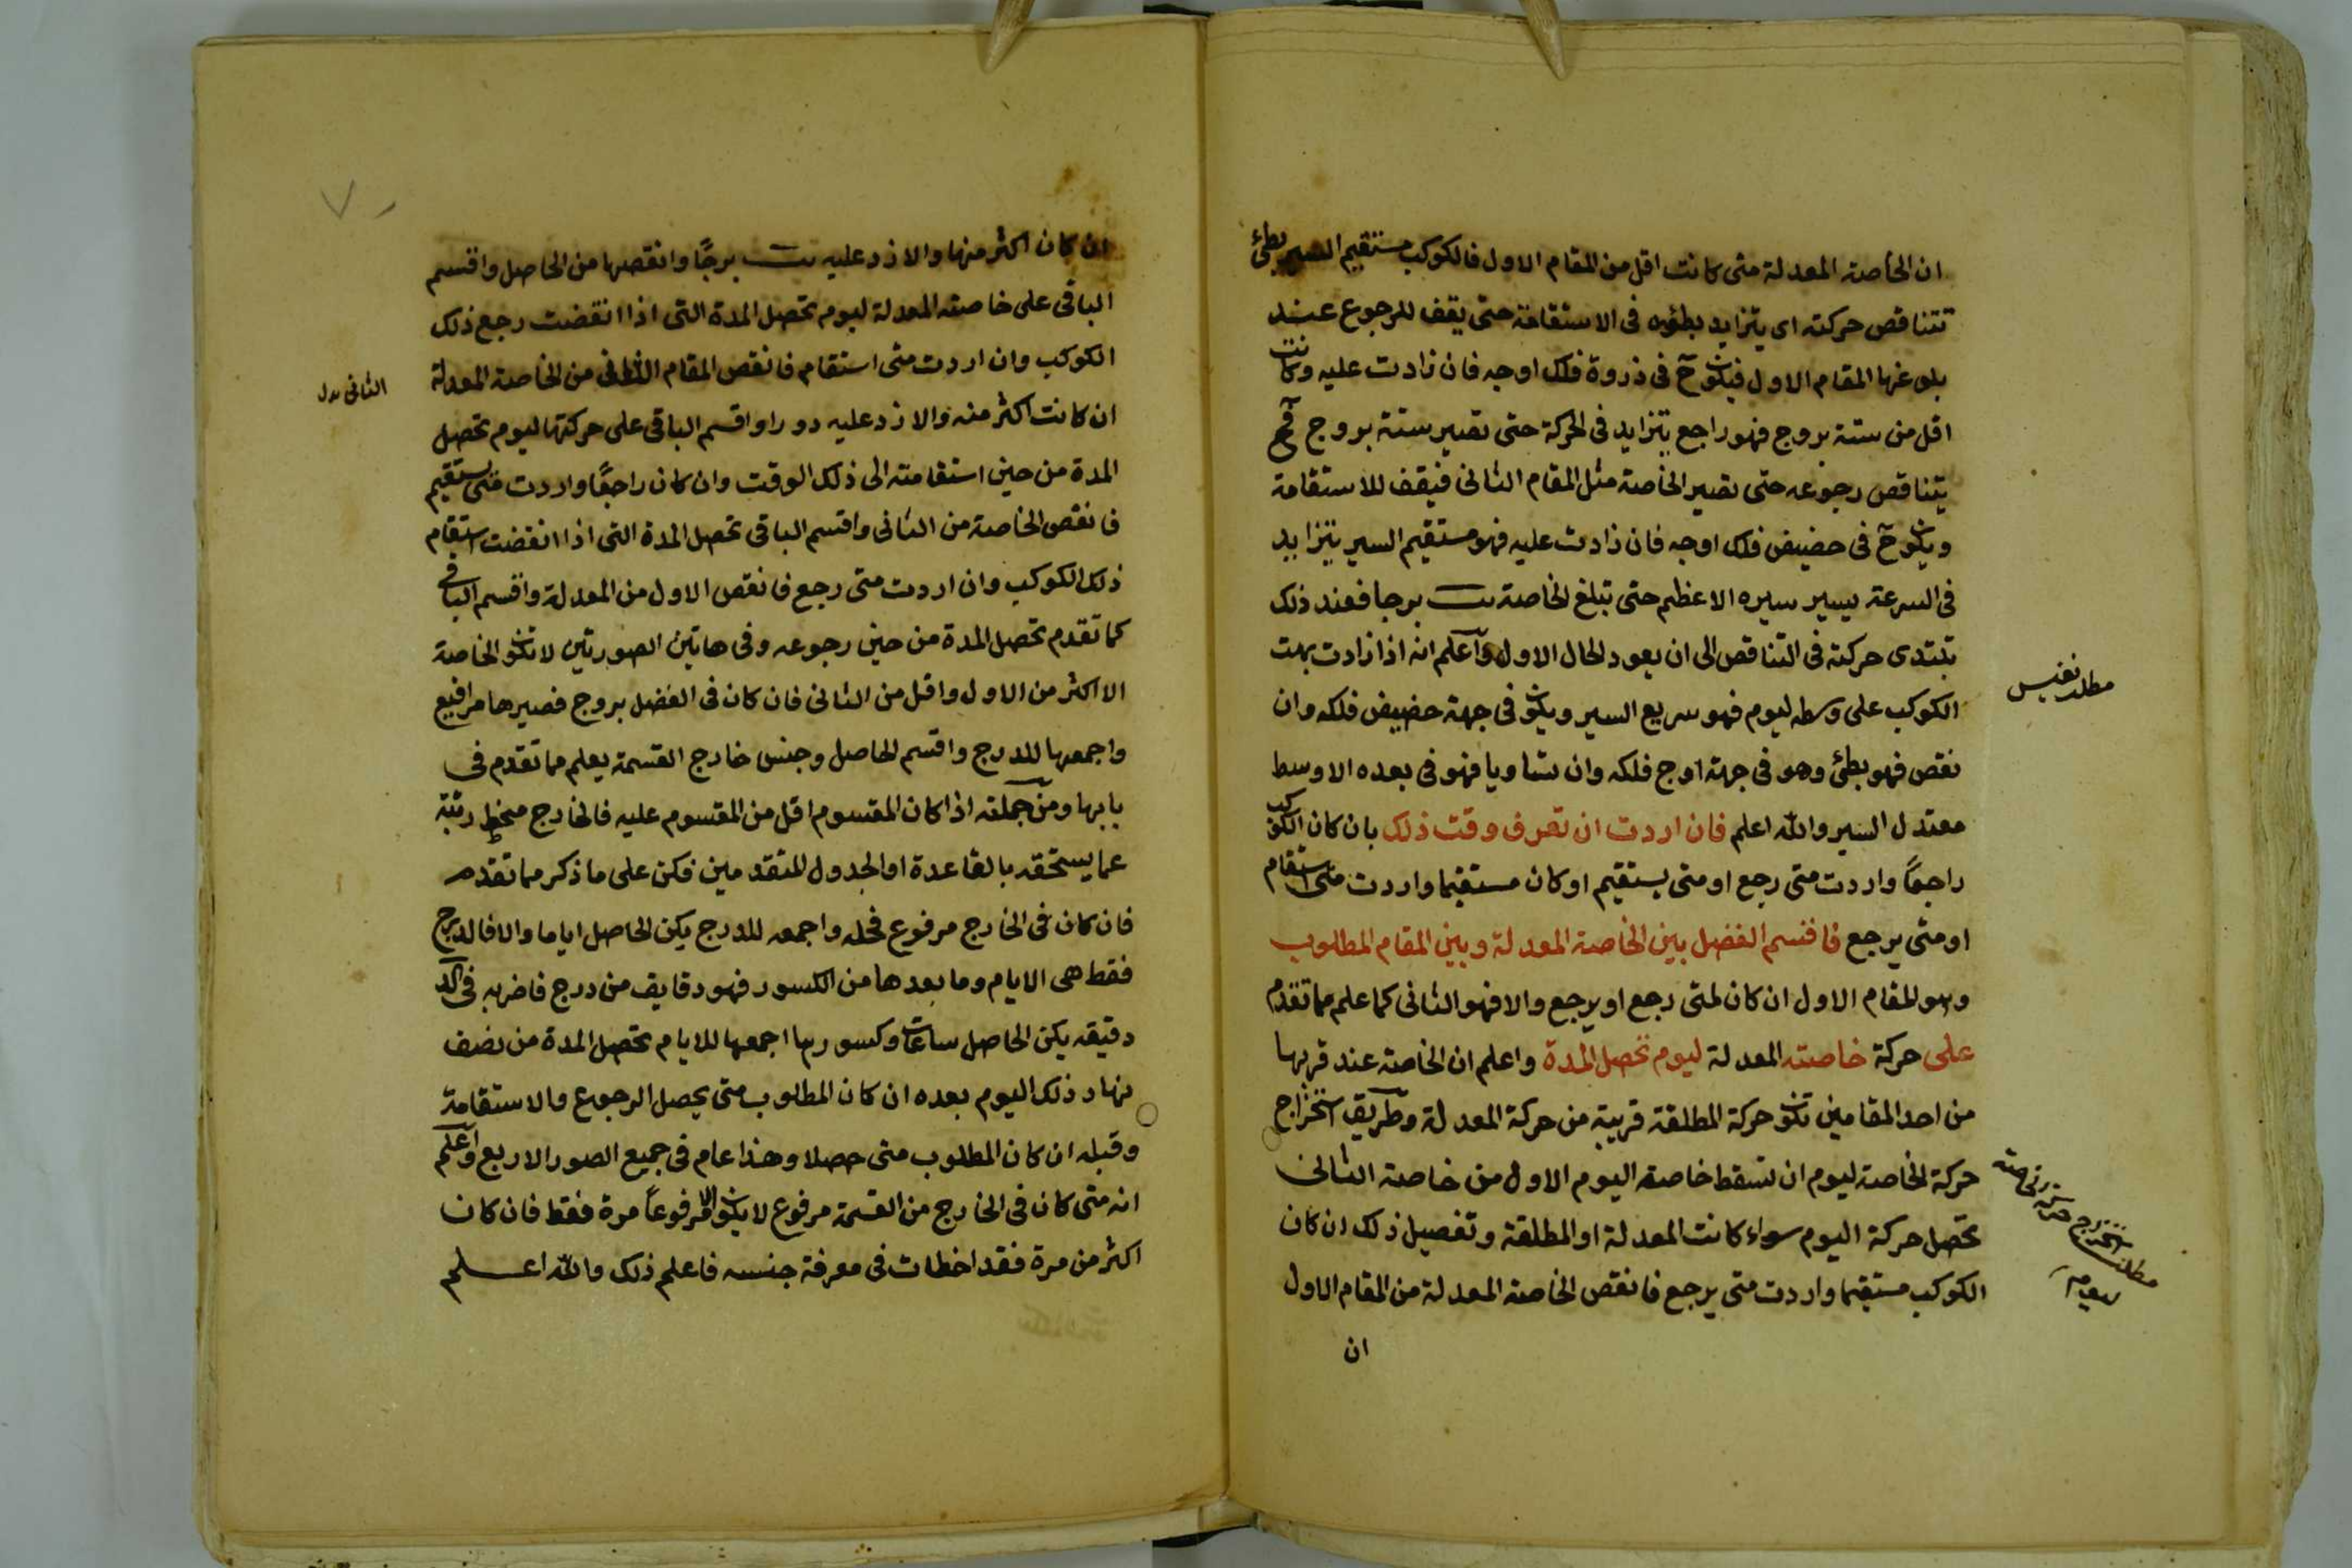 ان الخاصة المعدلة متى كانت اقل من المقام الاول فالكوكب مستقيم السير بطئ
تتناقص حركته اى يتزايد بطؤه فى الاستقامة حتى يقف للرجوع عند
بلوغها المقام الاول فيكون ح فى ذروة فلك اوجه فان زادت عليه وكانت
اقل من ستة بروج فهو راجع يتزايد فى الحركة حتى تصير ستة بروج فح
يتناقص رجوعه حتى تصير الخاصة مثل المقام الثانى فيقف للاستقامة
ويكون ح فى حضيض فلك اوجه فان زادت عليه فهو مستقيم السير يتزايد
فى السرعة يسير سيره الاعظم حتى تبلغ الخاصة يب برجا فعند ذلك
تبتدى حركته فى التناقص الى ان يعود لحال الاول واعلم انه اذا زادت بهت
الكوكب على وسطه ليوم فهو سريع السير ويكون فى جهة حضيض فلكه وان
نقص فهو بطئ وهو فى جهة اوج فلكه وان تساويا فهو فى بعده الاوسط
معتدل السير والله اعلم فان اردت ان تعرف وقت ذلك بان كان الكوكب
راجعاً واردت متى رجع او متى يستقيم او كان مستقيما واردت متى استقام
او متى يرجع فاقسم الفضل بين الخاصة المعدلة وبين المقام المطلوب
وهو المقام الاول ان كان لمتى رجع او يرجع والا فهو الثانى كما علم مما تقدم
على حركة خاصته المعدلة ليوم تحصل المدة واعلم ان الخاصة عند قربها
من احد المقامين تكون حركة المطلقة قريبة من حركة المعدلة وطريق استخراج
حركة الخاصة ليوم ان تسقط خاصة اليوم الاول من خاصة الثانى
تحصل حركة اليوم سواء كانت المعدلة او المطلقة وتفصيل ذلك ان كان
الكوكب مستقيما واردت متى يرجع فانقص الخاصة المعدلة من المقام الاول
ان
مطلب نفيس
مطلب استخراج حركة الخاصة
ان كان اكثر منها والا زد عليه يب برجًا وانقصها من الحاصل واقسم
الباقى على خاصته المعدلة ليوم تحصل المدة التى اذا انقضت رجع ذلك
الكوكب وان اردت متى استقام فانقص المقام الثانى من الخاصة المعدلة
ان كانت اكثر منه والا زد عليه دورا واقسم الباقى على حركتها ليوم تحصل
المدة من حين استقامته الى ذلك الوقت وان كان راجعًا واردت متى يستقيم
فانقص الخاصة من الثانى واقسم الباقى تحصل المدة التى اذا انقضت استقام
ذلك الكوكب وان اردت متى رجع فانقص الاول من المعدلة واقسم الباقى
كما تقدم تحصل المدة من حين رجوعه وفى هاتين الصورتين لا تكون الخاصة
الا اكثر من الاول واقل من الثانى فان كان فى الفضل بروج فصيرها مرافيع
واجمعها للدرج واقسم الحاصل وجنس خارج القسمة يعلم مما تقدم فى
بابها ومن جملته اذا كان المقسوم اقل من المقسوم عليه فالخارج منحط رتبة
عما يستحقه بالقاعدة او الجدول المتقدمين فكن على ما ذكر مما تقدم
فان كان فى الخارج مرفوع فحله واجمعه للدرج يكن الحاصل اياما والا فالدرج
فقط هى الايام وما بعدها من الكسور فهو دقايق من درج فاضربه فى كد
دقيقه يكن الحاصل ساعات وكسورها اجمعها للايام تحصل المدة من نصف
نهار ذلك اليوم بعده ان كان المطلوب متى يحصل الرجوع والاستقامة
وقبله ان كان المطلوب متى حصلا وهذا عام فى جميع الصور الاربع واعلم
انه متى كان فى الخارج من القسمة مرفوع لا يكون الا مرفوعاً مرة فقط فان كان
اكثر من مرة فقد اخطات فى معرفة جنسه فاعلم ذلك والله اعلم
الثانى